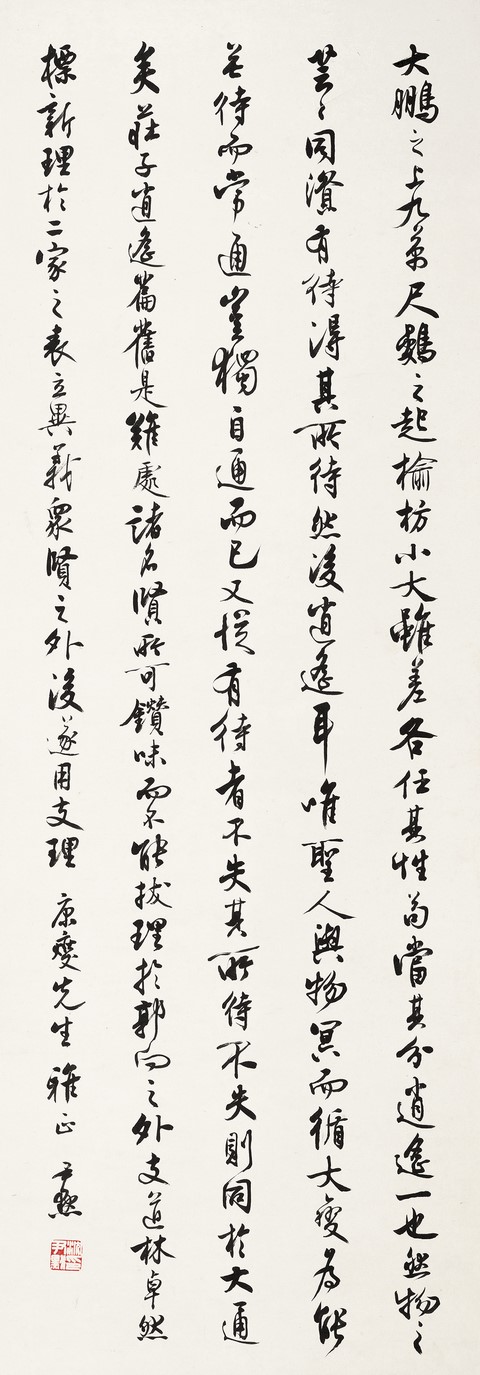 大鵬之上九萬尺鷃之起榆枋小大雖差各任其性苟當其分逍遙一也然物之
芸〻同資有待得其所待然後逍遙耳唯聖人與物冥而循大變為能
無待而常通豈獨自通而已又從有待者不失其所待不失則同於大通
矣莊子逍遙篇舊是難處諸名賢所可鑽味而不能拔理於郭向之外支道林卓然
標新理於二家之表立異義眾賢之外後遂用支理 康燮先生雅正 尹默